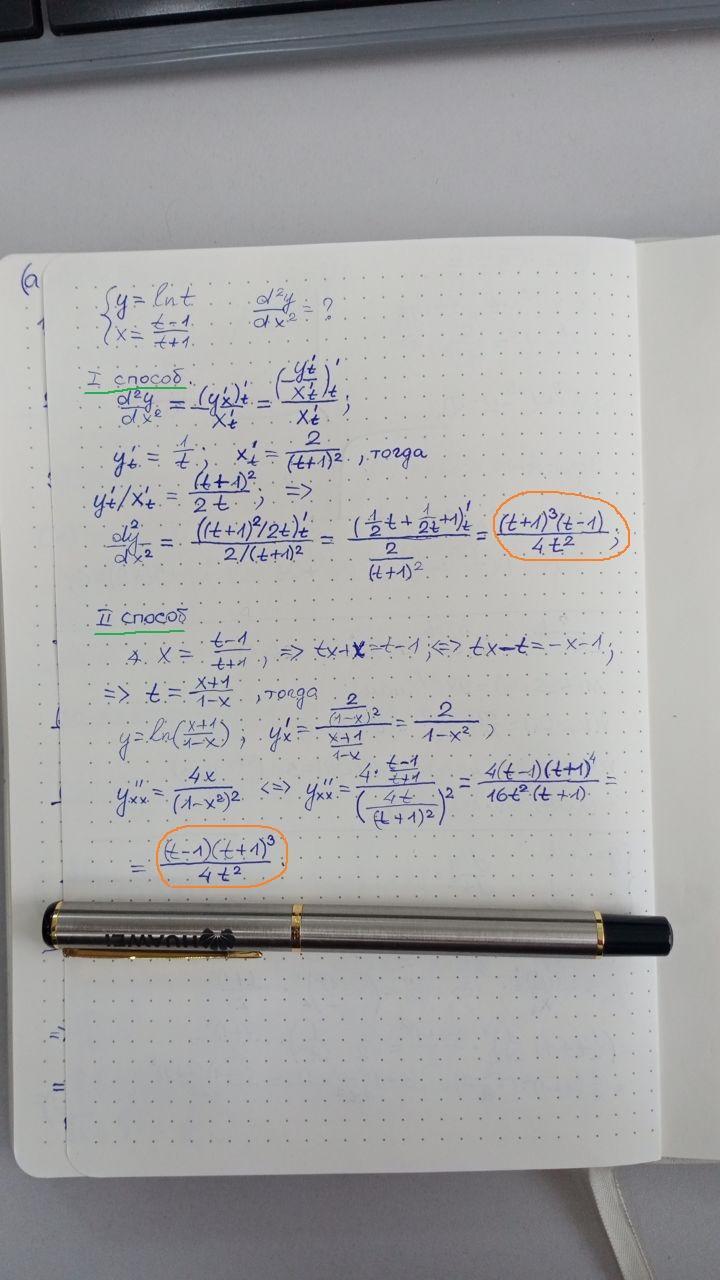 (a
{ y = ln t
x = (t-1)/(t+1)    d²y/dx² = ?
I способ.
d²y/dx² = (y'ₓ)'ₜ/x'ₜ = (y'ₜ/x'ₜ)'ₜ/x'ₜ ;
y'ₜ = 1/t ; x'ₜ = 2/(t+1)² , тогда
y'ₜ/x'ₜ = (t+1)²/2t ; =>
dy²/dx² = ((t+1)²/2t)'ₜ / 2/(t+1)² = (1/2 t + 1/2t + 1)'ₜ / (2/(t+1)²) = (t+1)³(t-1)/4t² ;
II способ
1. x = (t-1)/(t+1) , => tx+x=t-1 ; <=> tx-t=-x-1 ;
=> t = (x+1)/(1-x) , тогда
y=ln((x+1)/(1-x)) ; y'ₓ = (2/(1-x)²)/((x+1)/(1-x)) = 2/(1-x²) ,
y''ₓₓ = 4x/(1-x²)² <=> y''ₓₓ = (4·(t-1)/(t+1))/(4t/(t+1)²)² = 4(t-1)(t+1)⁴/16t²(t+1) =
= (t-1)(t+1)³/4t² .
HUAWEI